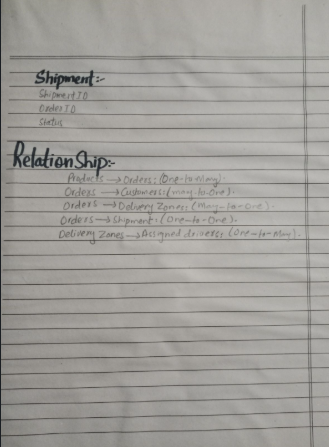 Shipment:-
Shipment ID
Order ID
Status
RelationShip:-
Products → Orders: (One-to-Many).
Orders → Customers: (many-to-One).
Orders → Delivery Zones: (Many-to-One).
Orders → Shipment: (One-to-One).
Delivery Zones → Assigned drivers: (One-to-Many).